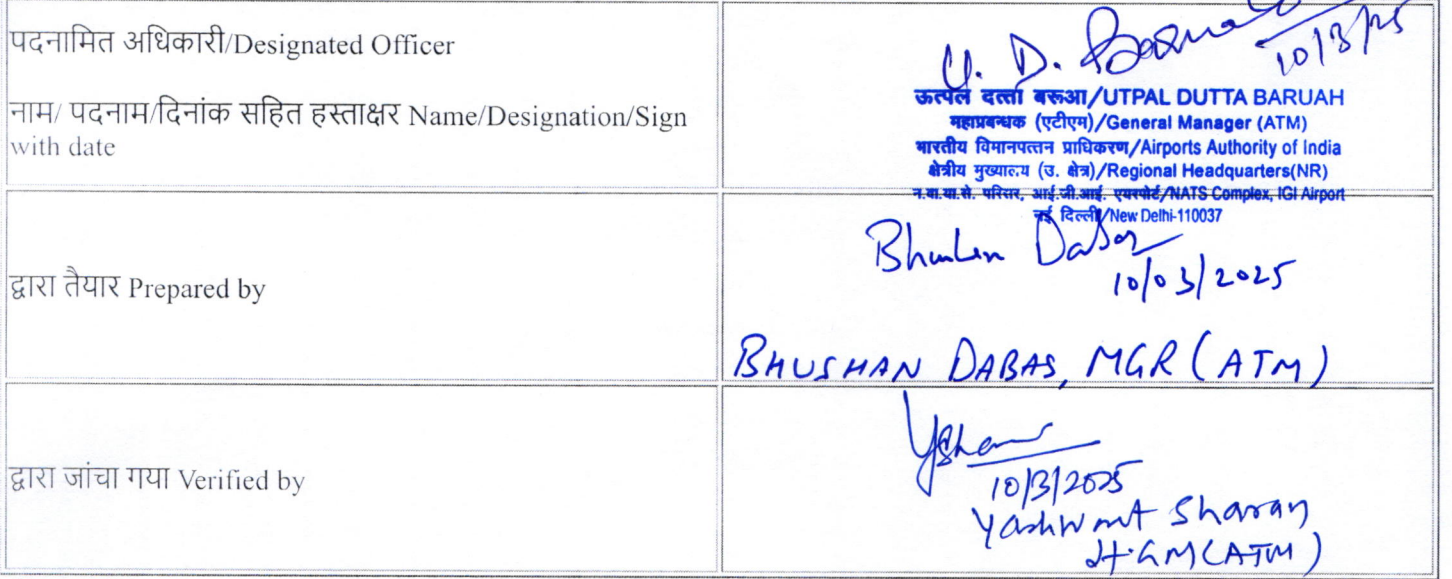 पदनामित अधिकारी/Designated Officer
नाम/ पदनाम/दिनांक सहित हस्ताक्षर Name/Designation/Sign
with date
U. D. Baruah
10/3/25
ऊत्पल दत्ता बरूआ/UTPAL DUTTA BARUAH
महाप्रबन्धक (एटीएम)/General Manager (ATM)
भारतीय विमानपत्तन प्राधिकरण/Airports Authority of India
क्षेत्रीय मुख्यालय (उ. क्षेत्र)/Regional Headquarters(NR)
न.वा.या.से. परिसर, आई.जी.आई. एयरपोर्ट/NATS Complex, IGI Airport
नई दिल्ली/New Delhi-110037
द्वारा तैयार Prepared by
Bhushan Dabas
10/03/2025
BHUSHAN DABAS, MGR (ATM)
द्वारा जांचा गया Verified by
10/3/2025
Yashwant Sharan
GM (ATM)